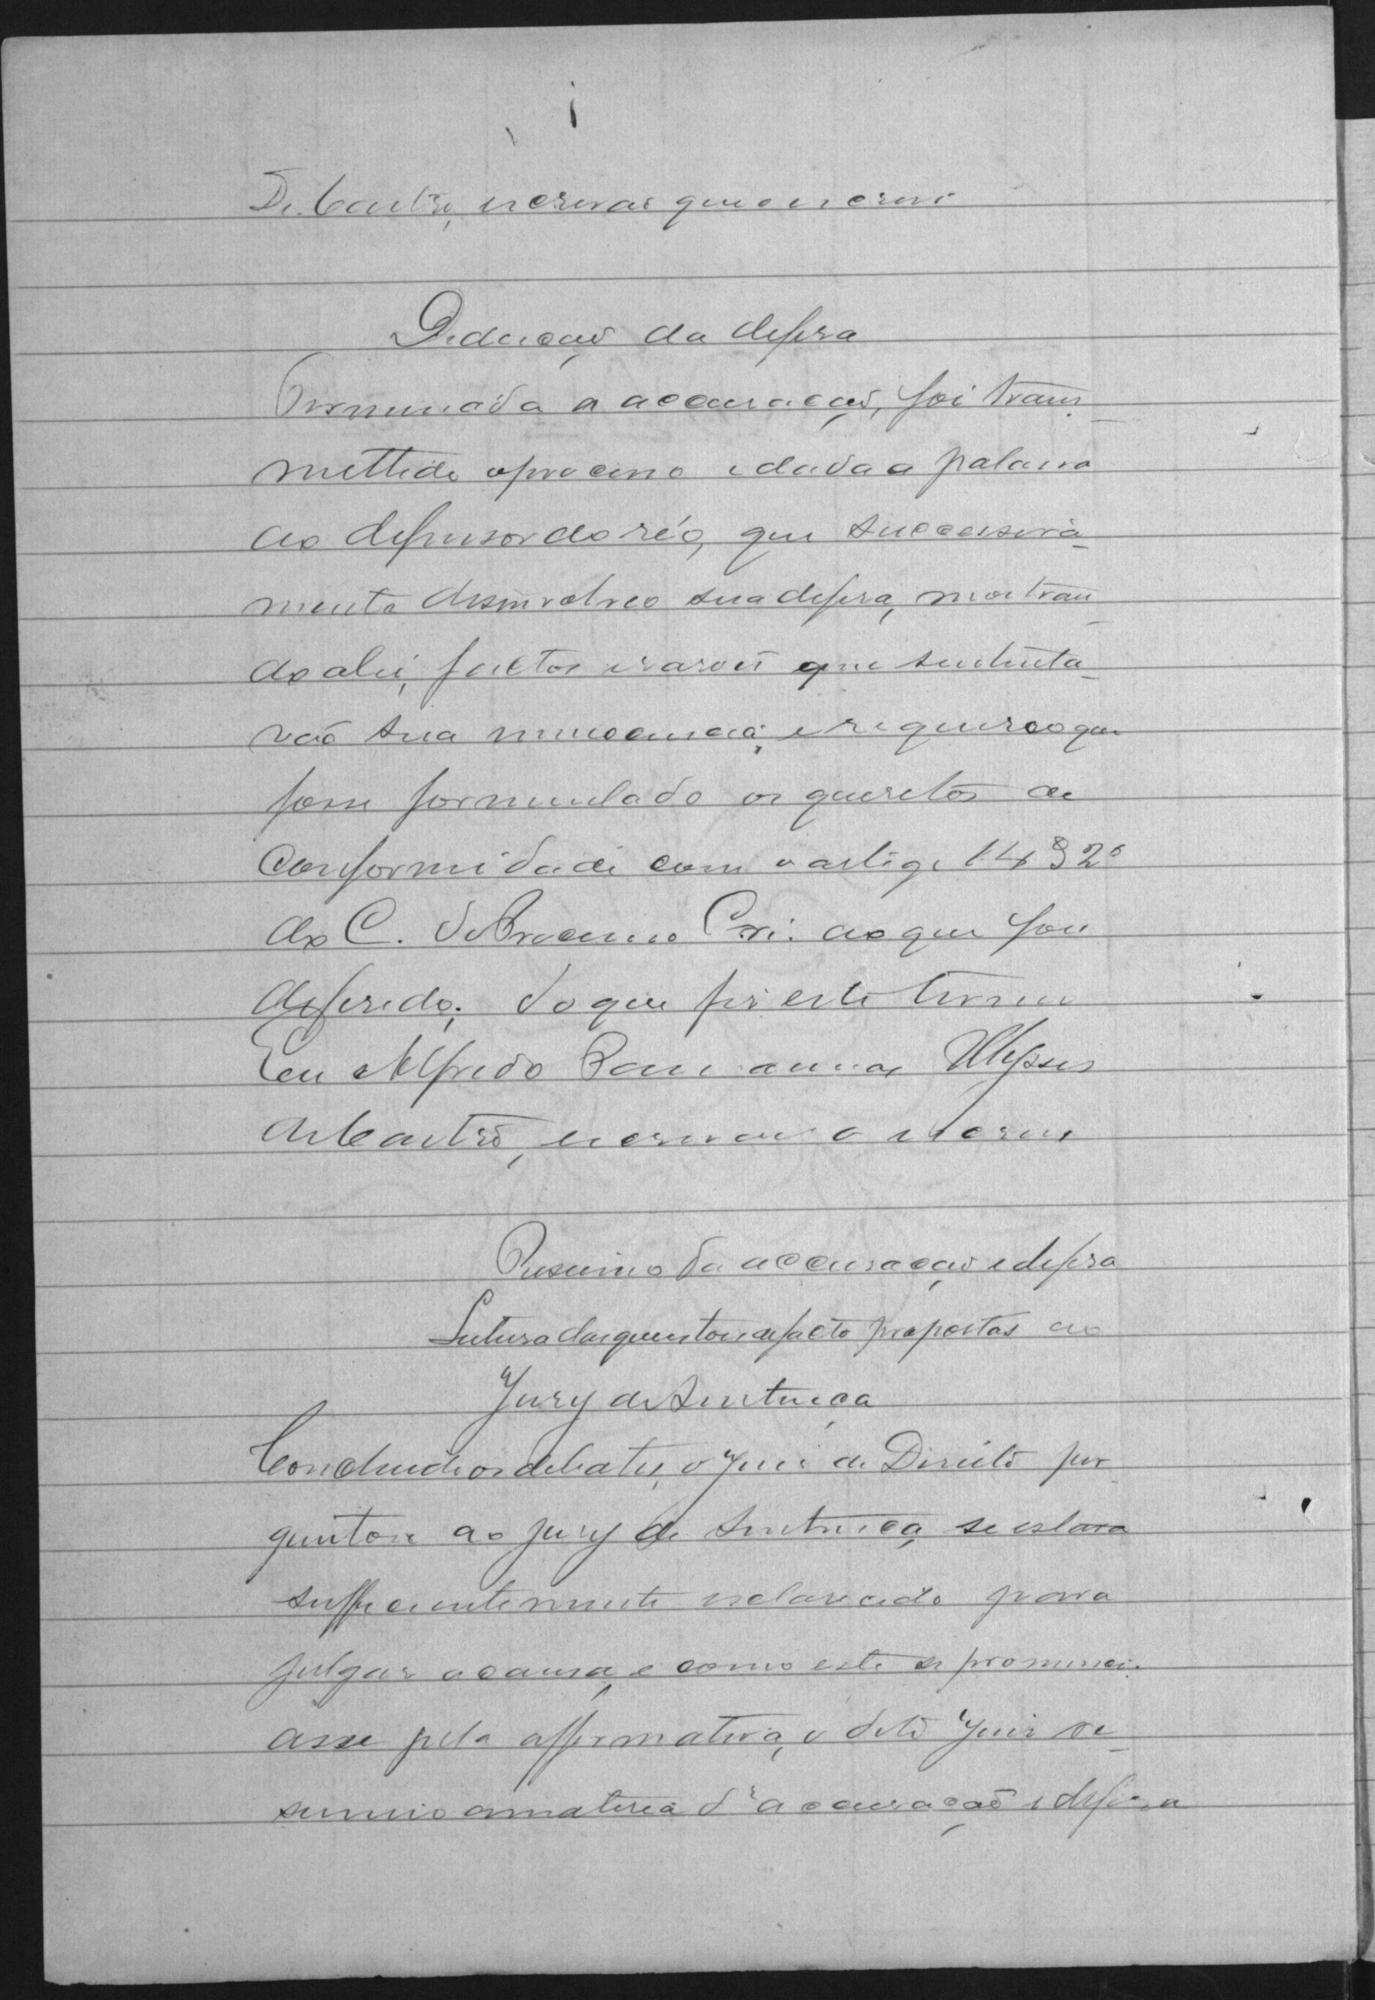 De Castro, escrivão que o escrevi
Deducção da defesa
Terminada a accusação, foi trans-
mettido o processo e dada a palavra
ao defensor do réo, que successiva-
mente desinvolveo sua defesa, mostran-
do a lei, factos e rasões que sustenta-
vão sua innocencia, e requereo que
fosse formulado os quesitos de
conformidade com o artigo 14 § 2º
do C. de Processo Cri. ao que foi
deferido; do que fis este termo
Eu Alfredo Ulysses
de Castro, escrivão o escrevi
Resumo da accusação e defesa
Leitura das questões de facto propostas ao
Jury de Sentença
Concluido os debates, o Juiz de Direito per-
guntou ao jury de Sentença se estava
sufficientemente esclarecido para
julgar a causa, e como este se pronunci-
asse pela affirmativa, o dito Juiz re-
sumio a materia da accusação e defesa